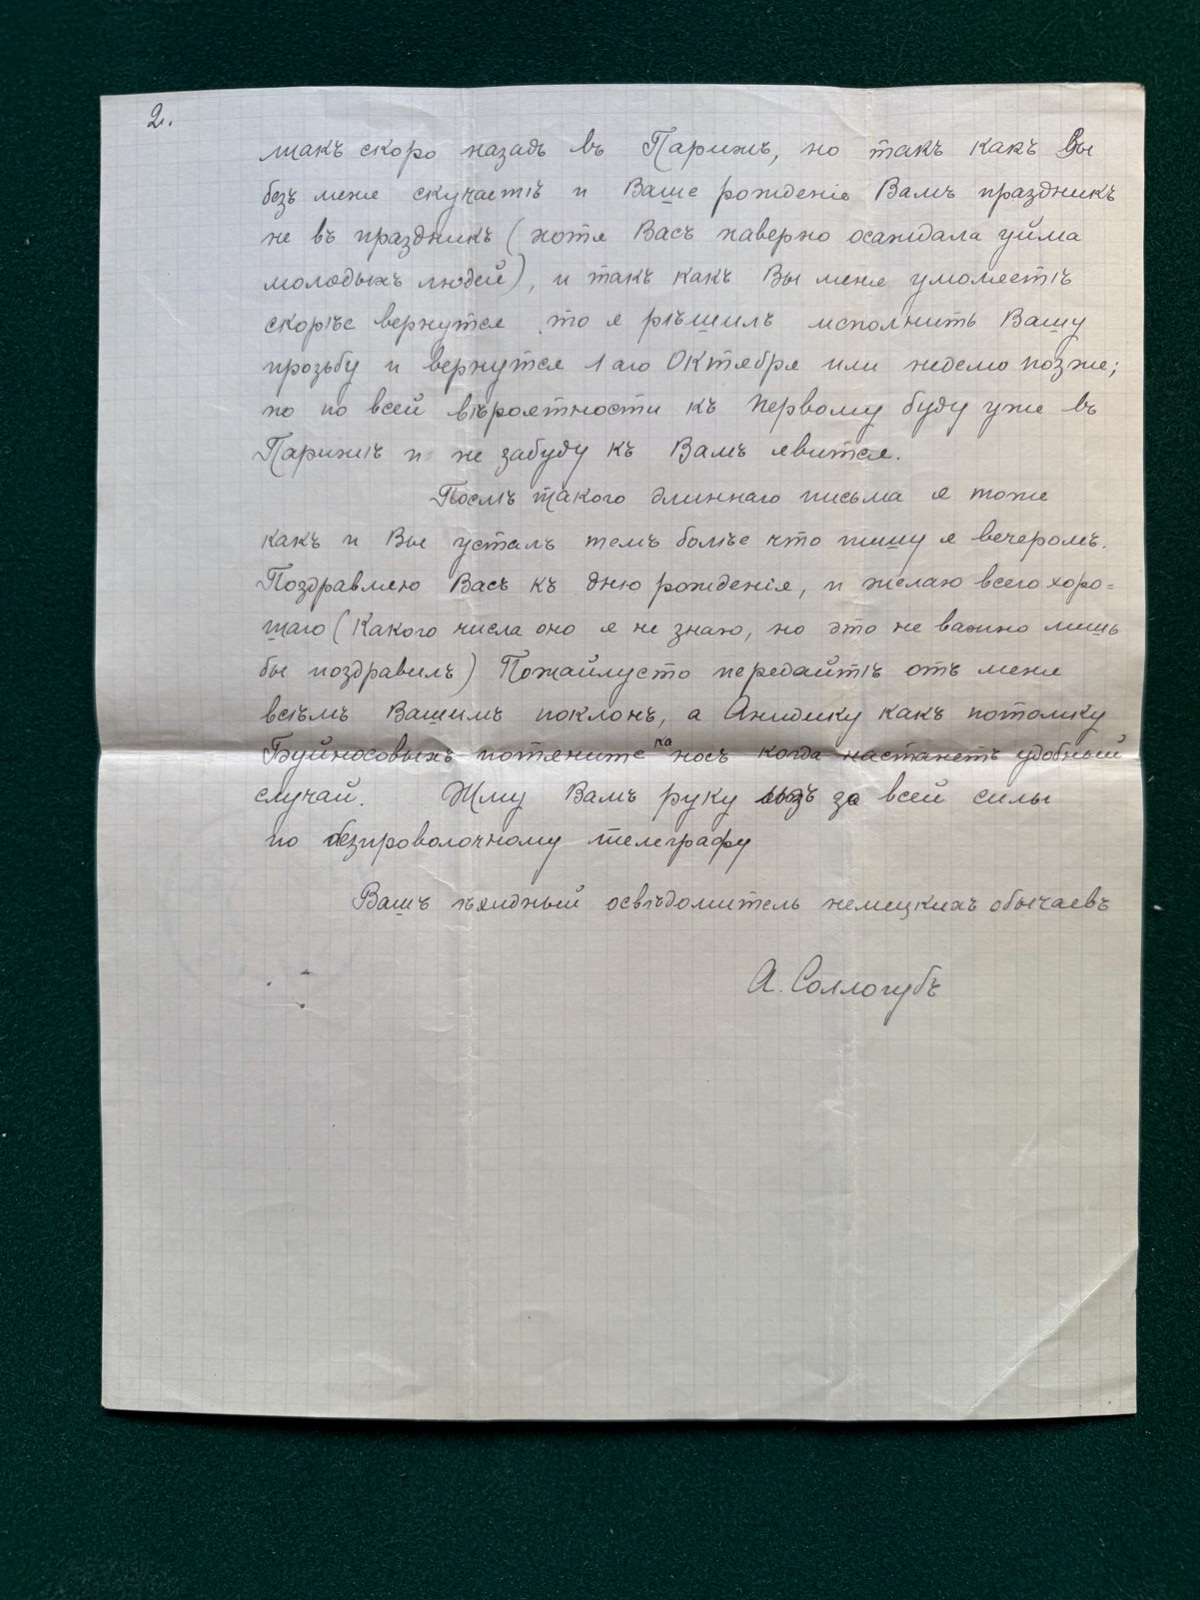 2.
такъ скоро назадъ въ Парижъ, но такъ какъ Вы
безъ меня скучаетѣ и Ваше рожденіе Вамъ праздникъ
не въ праздникъ (хотя Васъ наверно осаждала уйма
молодыхъ людей), и такъ какъ Вы меня умоляетѣ
скорѣе вернутся то я рѣшилъ исполнить Вашу
прозьбу и вернутся 1аго Октября или неделю позже;
но по всей вѣроятности къ первому буду уже въ
Парижѣ и не забуду къ Вамъ явится.
Послѣ такого длиннаго письма я тоже
какъ и Вы усталъ темъ болѣе что пишу я вечеромъ.
Поздравляю Васъ къ дню рожденія, и желаю всего хоро=
шаго (Какого числа оно я не знаю, но это не важно лишь
бы поздравилъ) Пожайлусто передайтѣ отъ меня
всѣмъ Вашимъ поклонъ, а как потомку
Буйносовыхъ потяните на носъ когда настанетъ удобный
случай. Жму Вамъ руку изъ за всей силы
по безпроволочному телеграфу
Вашъ освѣдомитель немецкихъ обычаевъ
А. Соллогубъ